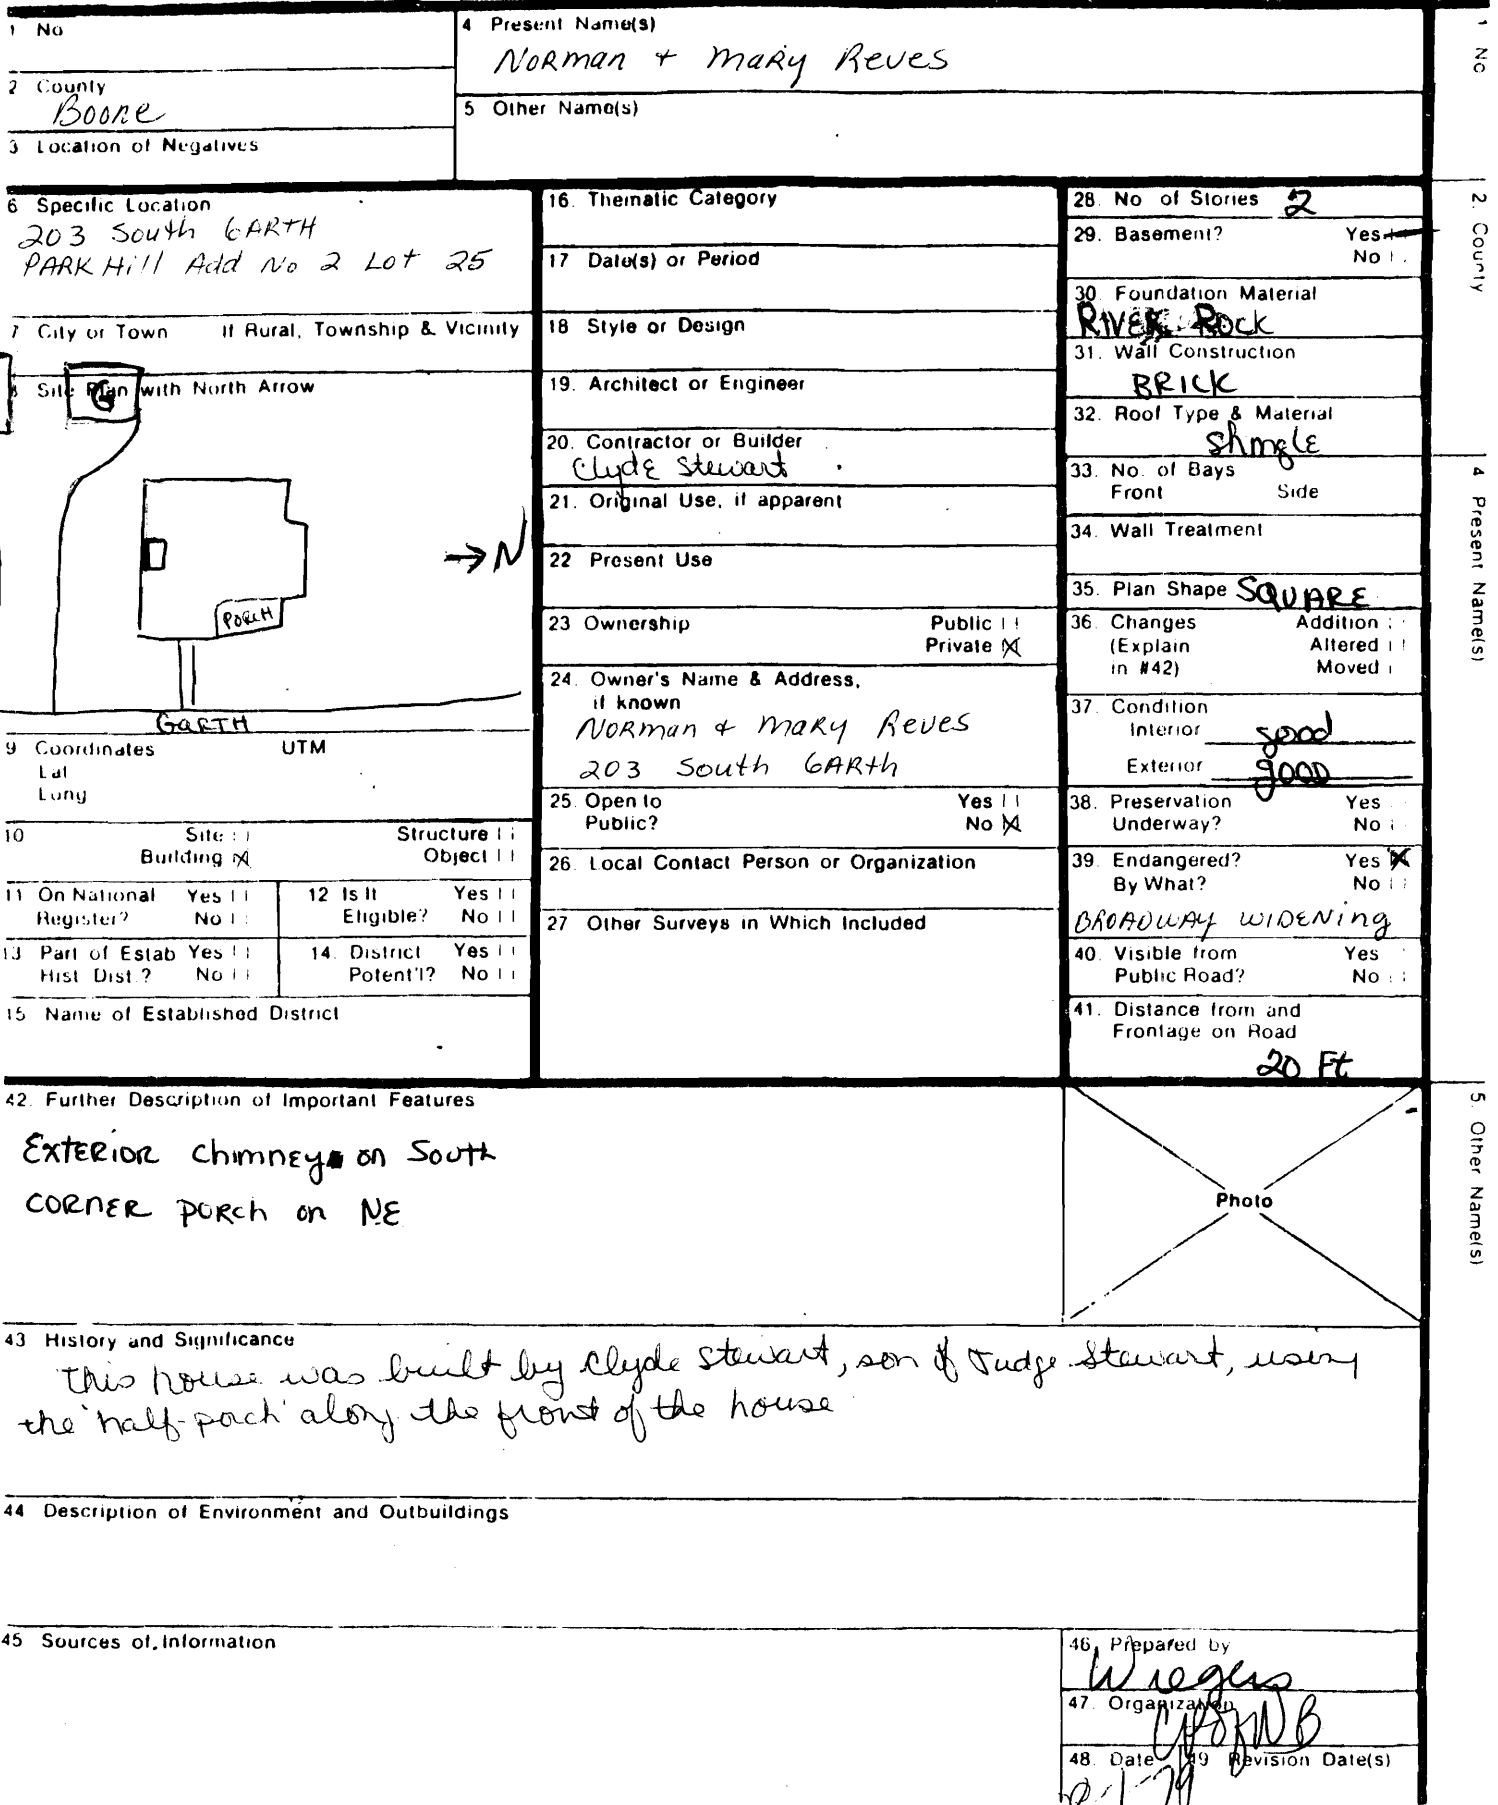 1 No
4 Present Name(s)
Norman + Mary Reves
2 County
Boone
5 Other Name(s)
3 Location of Negatives
6 Specific Location
203 South GARTH
PARK Hill Add No 2 Lot 25
7 City or Town If Rural, Township & Vicinity
8 Site Plan with North Arrow
G
PORCH
→ N
GARTH
9 Coordinates UTM
Lat
Long
10 Site
Structure
Building X
Object
11 On National Register? Yes No
12 Is It Eligible? Yes No
13 Part of Estab Hist Dist.? Yes No
14. District Potent'l? Yes No
15 Name of Established District
16. Thematic Category
17 Date(s) or Period
18 Style or Design
19. Architect or Engineer
20. Contractor or Builder
Clyde Stewart
21. Original Use, if apparent
22 Present Use
23 Ownership Public
Private X
24. Owner's Name & Address,
if known
Norman & Mary Reves
203 South GARth
25. Open to Yes
Public? No X
26. Local Contact Person or Organization
27 Other Surveys in Which Included
28. No of Stories 2
29. Basement? Yes
No
30. Foundation Material
RIVER ROCK
31. Wall Construction
BRICK
32. Roof Type & Material
shingle
33. No. of Bays
Front Side
34. Wall Treatment
35. Plan Shape SQUARE
36. Changes Addition
(Explain Altered
in #42) Moved
37. Condition
Interior good
Exterior good
38. Preservation Yes
Underway? No
39. Endangered? Yes X
By What? No
BROADWAY WIDENing
40. Visible from Yes
Public Road? No
41. Distance from and
Frontage on Road
20 Ft
42. Further Description of Important Features
EXTERIOR chimney on South
CORNER porch on NE
Photo
43 History and Significance
This house was built by Clyde Stewart, son of Judge Stewart, using
the 'half-porch' along the front of the house
44 Description of Environment and Outbuildings
45 Sources of Information
46. Prepared by
Wiegers
47. Organization
48. Date 49 Revision Date(s)
1 No
2. County
4 Present Name(s)
5. Other Name(s)